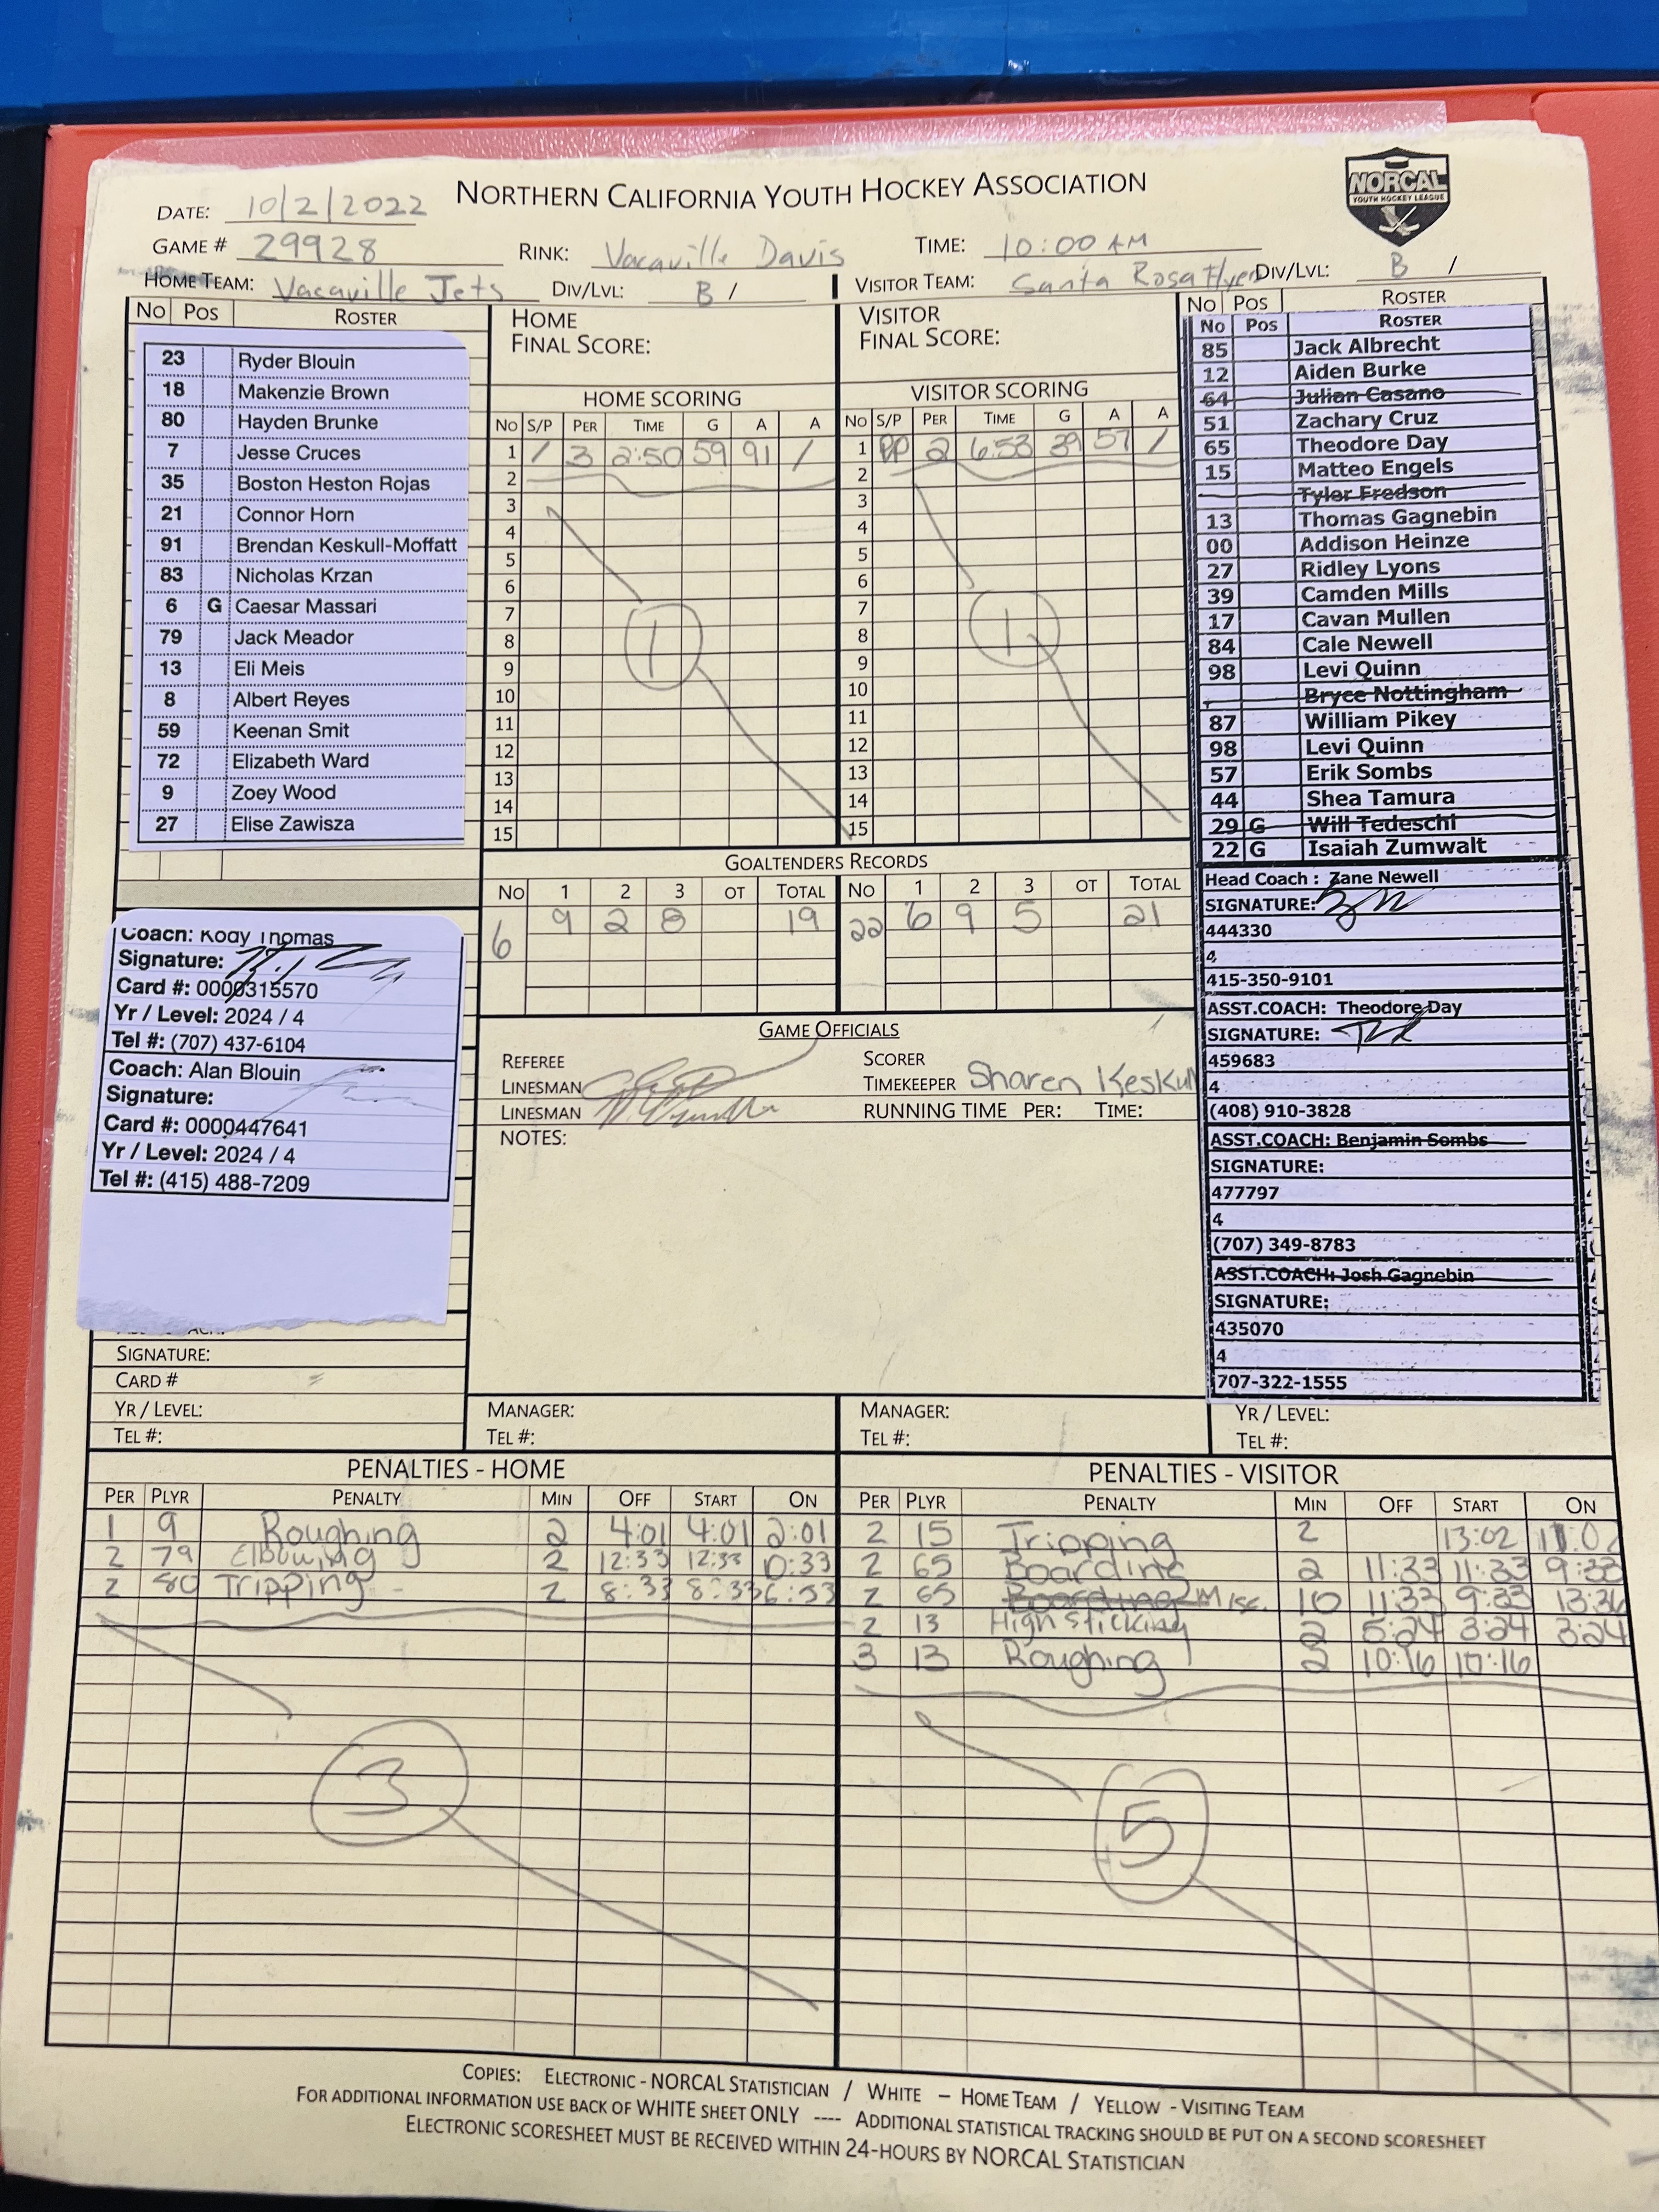 NORTHERN CALIFORNIA YOUTH HOCKEY ASSOCIATION
NORCAL
YOUTH HOCKEY LEAGUE
DATE: 10/2/2022
GAME # 29928 RINK: Vacaville Davis TIME: 10:00 AM
HOME TEAM: Vacaville Jets DIV/LVL: B / VISITOR TEAM: Santa Rosa Flyers DIV/LVL: B /
No Pos ROSTER
23 Ryder Blouin
18 Makenzie Brown
80 Hayden Brunke
7 Jesse Cruces
35 Boston Heston Rojas
21 Connor Horn
91 Brendan Keskull-Moffatt
83 Nicholas Krzan
6 G Caesar Massari
79 Jack Meador
13 Eli Meis
8 Albert Reyes
59 Keenan Smit
72 Elizabeth Ward
9 Zoey Wood
27 Elise Zawisza
Coach: Kody Thomas
Signature:
Card #: 0000315570
Yr / Level: 2024 / 4
Tel #: (707) 437-6104
Coach: Alan Blouin
Signature:
Card #: 0000447641
Yr / Level: 2024 / 4
Tel #: (415) 488-7209
SIGNATURE:
CARD #
YR / LEVEL:
TEL #:
HOME
FINAL SCORE:
HOME SCORING
No S/P PER TIME G A A
1 / 3 2:50 59 91 /
2
3
4
5
6
7
8
9
10
11
12
13
14
15
1
VISITOR
FINAL SCORE:
VISITOR SCORING
No S/P PER TIME G A A
1 PP 2 6:53 39 57 /
2
3
4
5
6
7
8
9
10
11
12
13
14
15
1
GOALTENDERS RECORDS
No 1 2 3 OT TOTAL No 1 2 3 OT TOTAL
6 9 2 8 19 22 6 9 5 21
GAME OFFICIALS
REFEREE SCORER
LINESMAN TIMEKEEPER Sharen Keskull
LINESMAN RUNNING TIME PER: TIME:
NOTES:
MANAGER: MANAGER:
TEL #: TEL #:
No Pos ROSTER
No Pos ROSTER
85 Jack Albrecht
12 Aiden Burke
64 Julian Casano
51 Zachary Cruz
65 Theodore Day
15 Matteo Engels
Tyler Fredson
13 Thomas Gagnebin
00 Addison Heinze
27 Ridley Lyons
39 Camden Mills
17 Cavan Mullen
84 Cale Newell
98 Levi Quinn
Bryce Nottingham
87 William Pikey
98 Levi Quinn
57 Erik Sombs
44 Shea Tamura
29 G Will Tedeschi
22 G Isaiah Zumwalt
Head Coach : Zane Newell
SIGNATURE:
444330
4
415-350-9101
ASST.COACH: Theodore Day
SIGNATURE:
459683
4
(408) 910-3828
ASST.COACH: Benjamin Sombs
SIGNATURE:
477797
4
(707) 349-8783
ASST.COACH: Josh Gagnebin
SIGNATURE:
435070
4
707-322-1555
YR / LEVEL:
TEL #:
PENALTIES - HOME
PER PLYR PENALTY MIN OFF START ON
1 9 Roughing 2 4:01 4:01 2:01
2 79 Elbowing 2 12:33 12:33 10:33
2 80 Tripping 2 8:33 8:33 6:53
3
PENALTIES - VISITOR
PER PLYR PENALTY MIN OFF START ON
2 15 Tripping 2 13:02 11:02
2 65 Boarding 2 11:33 11:33 9:33
2 65 Boarding Misc. 10 11:33 9:33 13:36
2 13 High sticking 2 5:24 3:24 3:24
3 13 Roughing 2 10:16 10:16
5
COPIES: ELECTRONIC - NORCAL STATISTICIAN / WHITE – HOME TEAM / YELLOW - VISITING TEAM
FOR ADDITIONAL INFORMATION USE BACK OF WHITE SHEET ONLY ---- ADDITIONAL STATISTICAL TRACKING SHOULD BE PUT ON A SECOND SCORESHEET
ELECTRONIC SCORESHEET MUST BE RECEIVED WITHIN 24-HOURS BY NORCAL STATISTICIAN